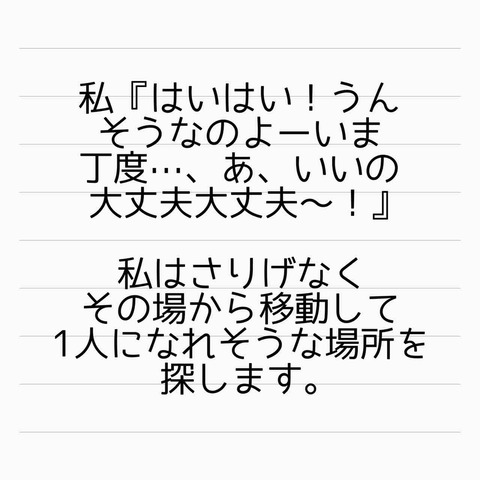 私『はいはい！うん
そうなのよーいま
丁度…、あ、いいの
大丈夫大丈夫～！』
私はさりげなく
その場から移動して
1人になれそうな場所を
探します。